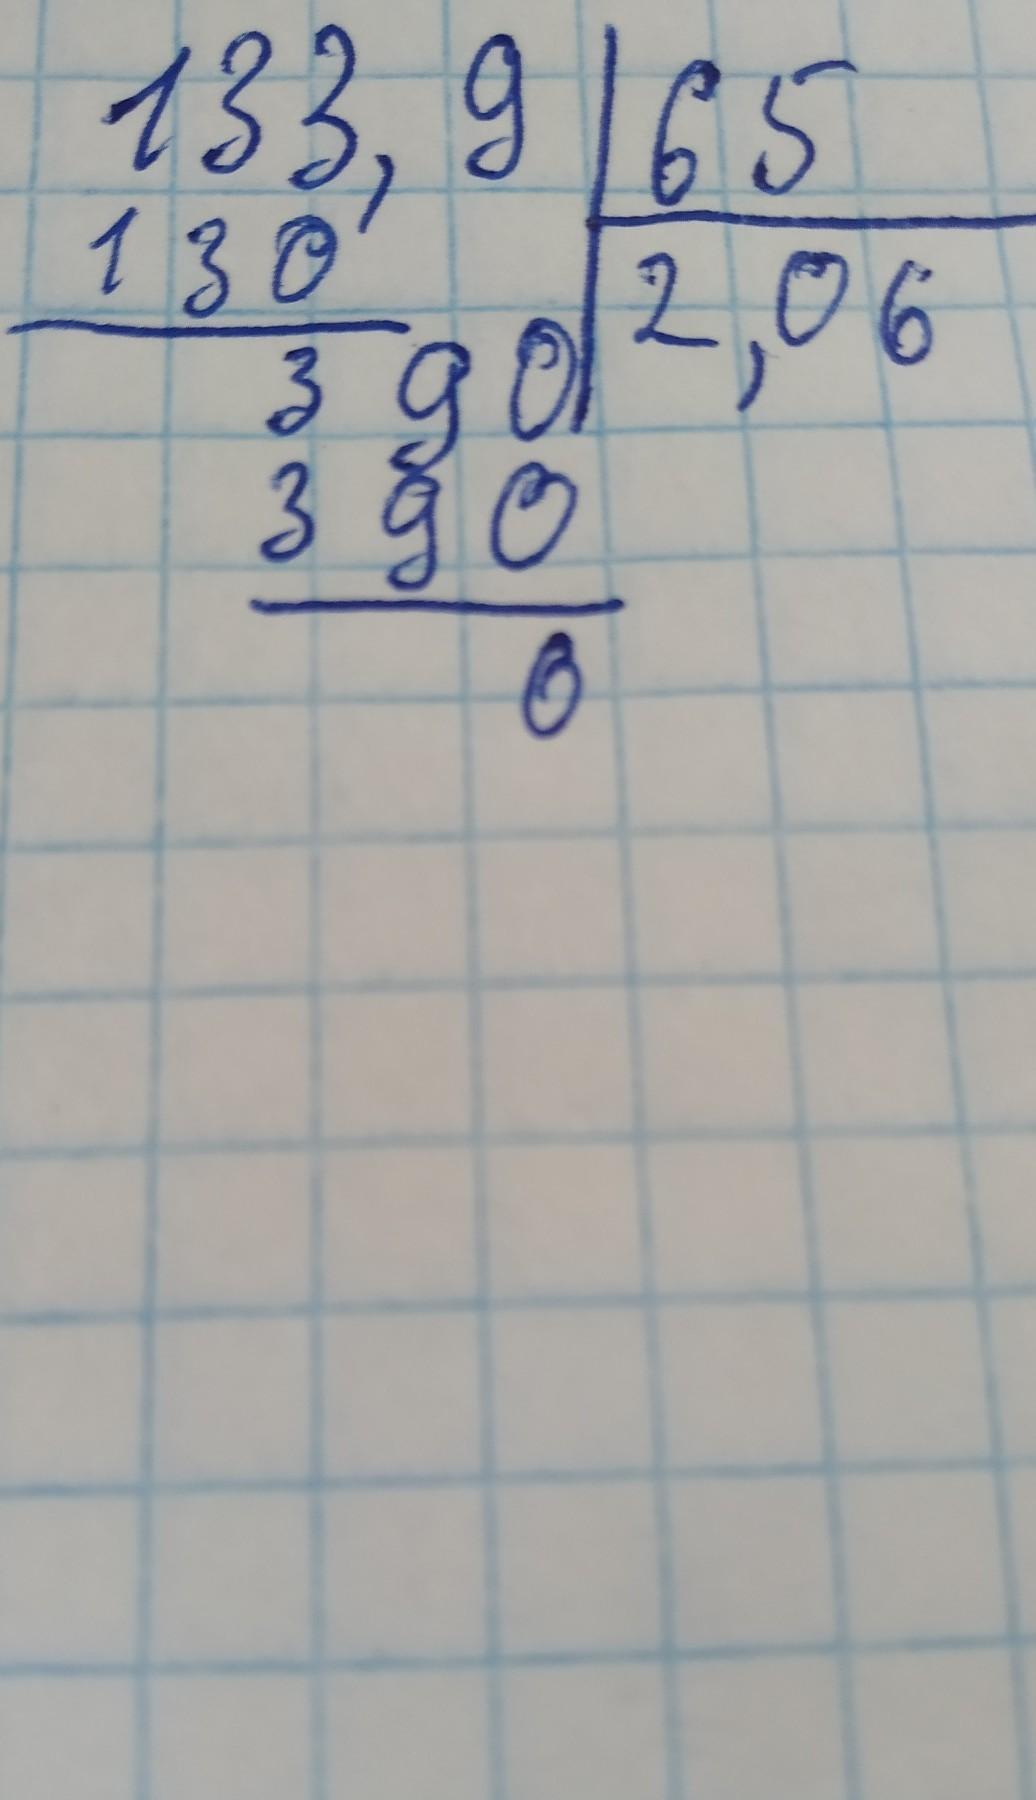 133,9 65
130 2,06
390
390
0